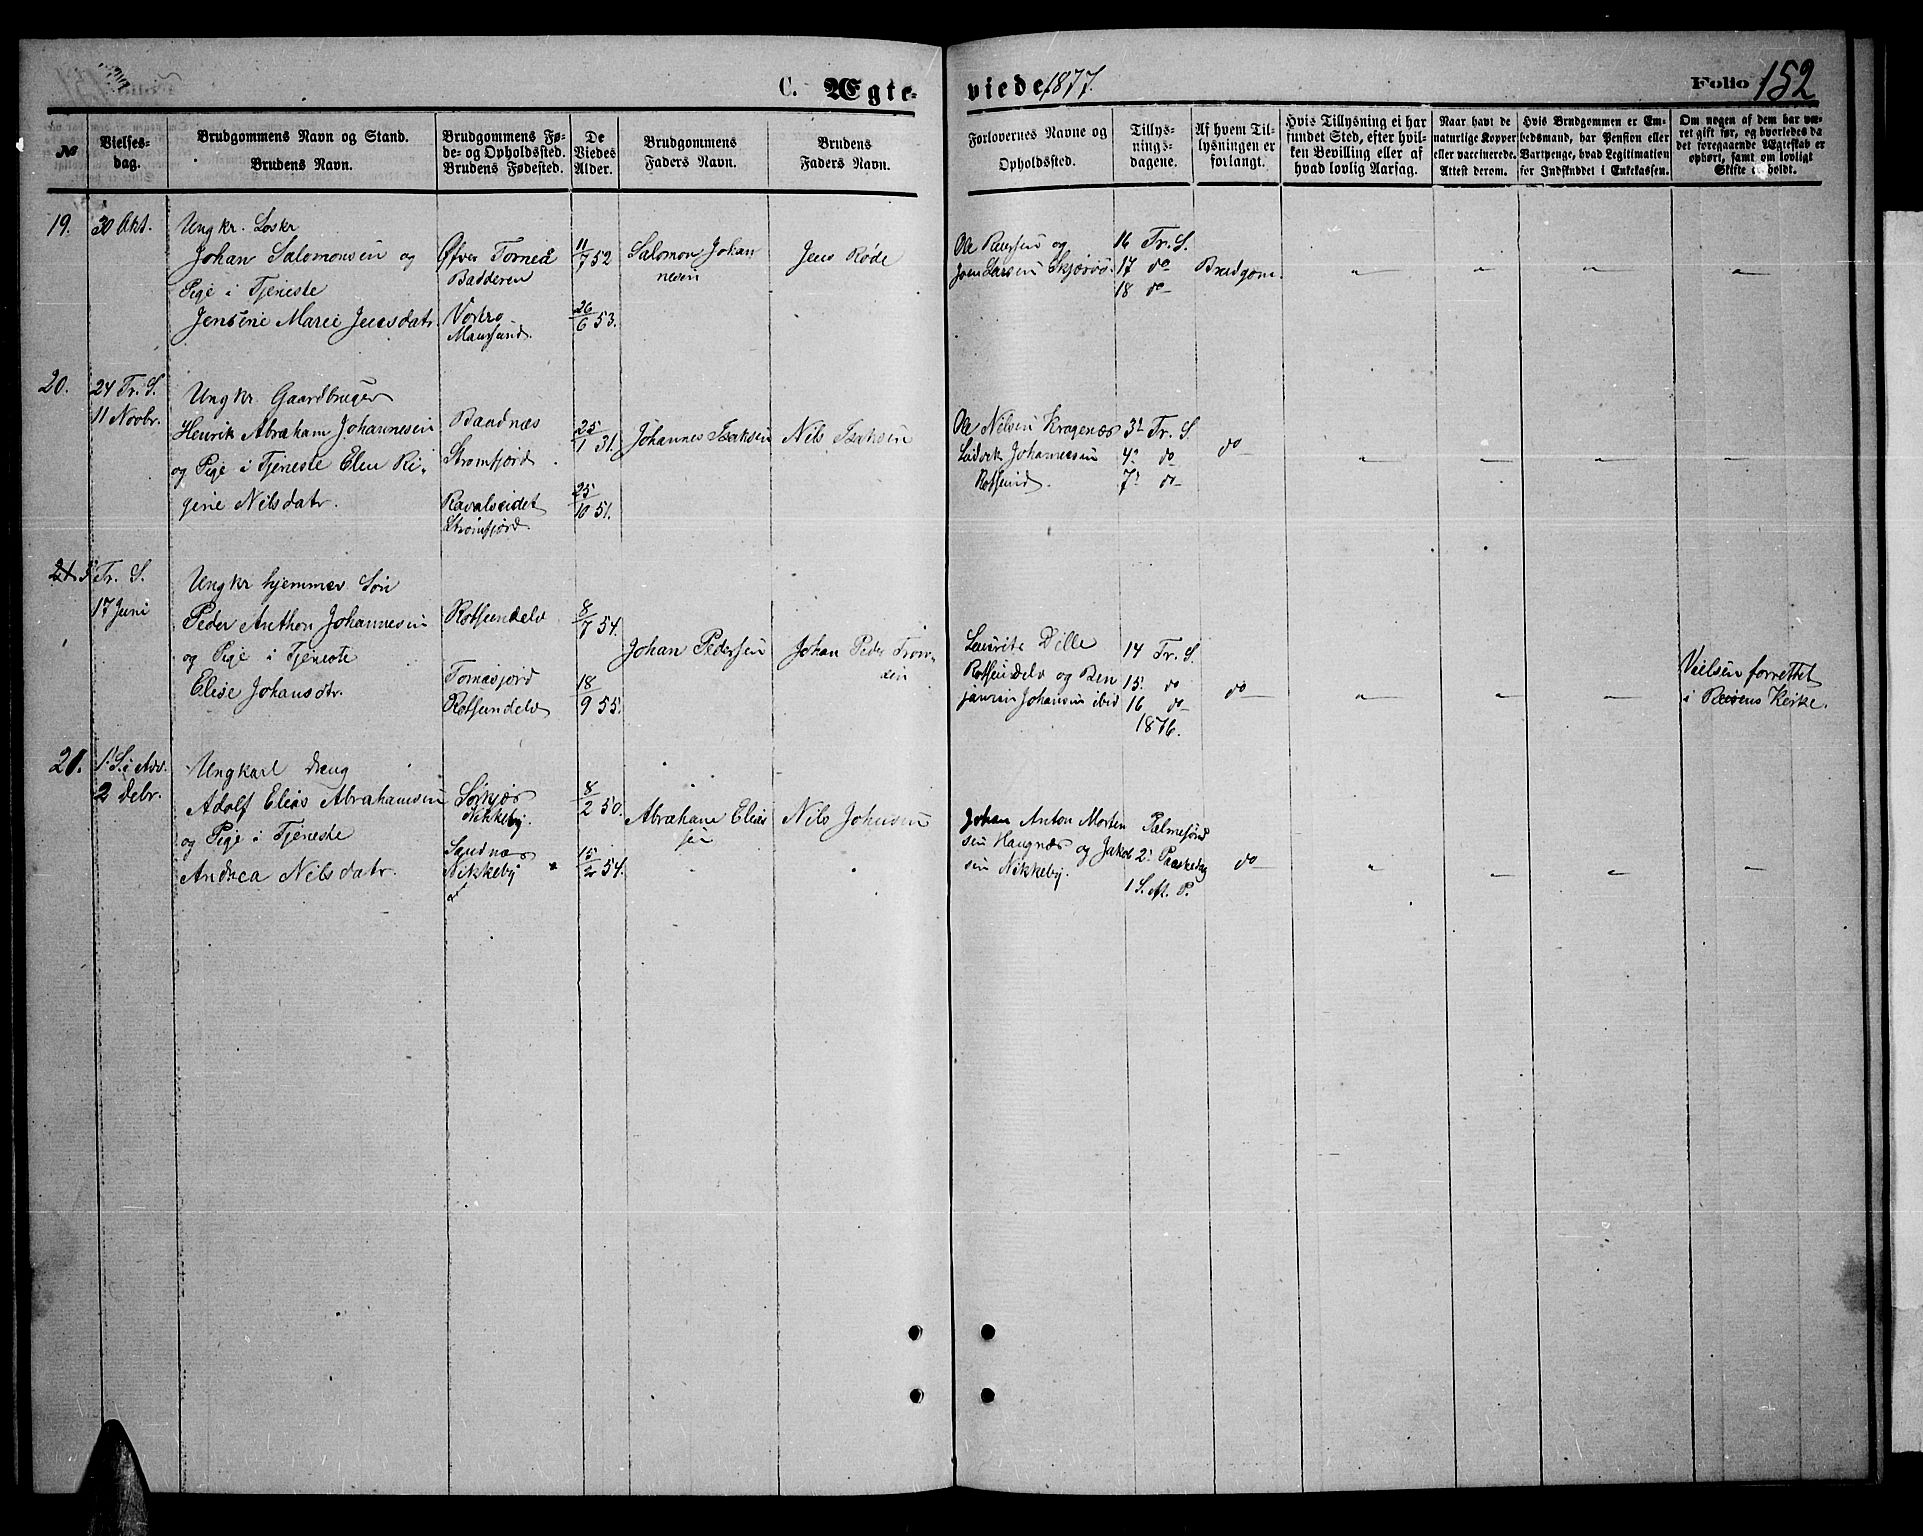 C. Ægte-
viede 1877.
Folio 152
№
Vielses-
dag.
Brudgommens Navn og Stand.
Brudens Navn.
Brudgommens Fø-
de- og Opholdssted.
Brudens Fødested.
De
Viedes
Alder.
Brudgommens
Faders Navn.
Brudens
Faders Navn.
Forlovernes Navne og
Opholdssted.
Tillys-
nings-
dagene.
Af hvem Til-
lysningen er
forlangt.
Hvis Tillysning ei har
fundet Sted, efter hvil-
ken Bevilling eller af
hvad lovlig Aarsag.
Naar havt de
naturlige Kopper
eller vaccinerede.
Attest derom.
Hvis Brudgommen er Em-
bedsmand, har Pension eller
Vartpenge, hvad Legitimation
for Indskuddet i Enkekassen.
Om nogen af dem har væ-
ret gift før, og hvorledes da
det foregaaende Ægteskab er
ophørt, samt om lovligt
Skifte er holdt.
19.
30 Okt.
Ungkr. Løskr
Johan Salomonsen og
Pige i Tjeneste
Jensine Marie Jensdatr.
Øfver Torneå
Badderen
Vorbro
Maursund.
11/7 52
26/6 53.
Salomon Johan
nesen
Jens Røde
Ole Paulsen og
Joen Larsen Skjærvø.
16 Tr. S.
17 do
18 do
Brudgom.
20.
24 Tr. S.
11 Novbr.
Ungkr Gaardbruger
Henrik Abraham Johannesen
og Pige i Tjeneste Elen Re-
gine Nilsdatr.
Bandnæs
Strømfjord
Ravalseidet
Strømfjord.
25/1 31.
25/10 51.
Johannes Isaksen
Nils Isaksen
Ole Nilsen Kragenæs
Ludvik Johannesen
Rotsund.
3d Tr. S.
4d do
7d do
do
21. 3
Tr. S.
17 Juni
Ungkr hjemmev Søn
Peder Anthon Johannesen
og Pige i Tjeneste
Elise Johansdtr.
Rotsundelv
Tomasjord
Rotsundelv
8/7 54.
18/9 55.
Johan Pedersen
Johan Peder Tron-
sen
Laurits Dille
Rotsundelv og Ben
jamin Johansen ibid
14 Tr. S.
15. do
16 do
1876.
do
Vielsen forrettet
i Reisens Kirke.
21.
1. S. i Adv.
2 Debr.
Ungkarl dreng
Adolf Elias Abrahamsen
og Pige i Tjeneste
Andrea Nilsdatr.
Sørkjos
Nikkeby.
Sandnæs
Nikkeby
8/2 50.
15/2 54.
Abraham Elias
sen
Nils Johnsen
Johan Anton Morten
sen Haugnæs og Jakob
sen Nikkeby.
Palmesønd
2. Paaskedag
1 S. Af. P.
do